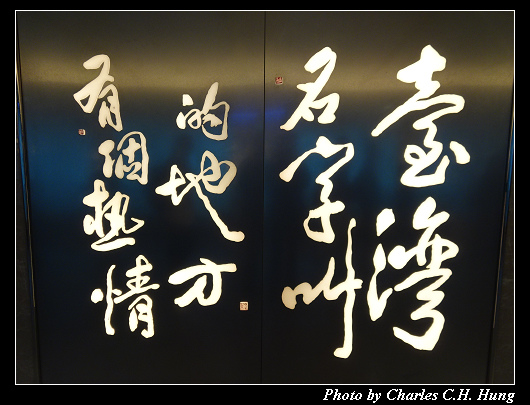 有個熱情
的地方
名字叫
臺灣
Photo by Charles C.H. Hung